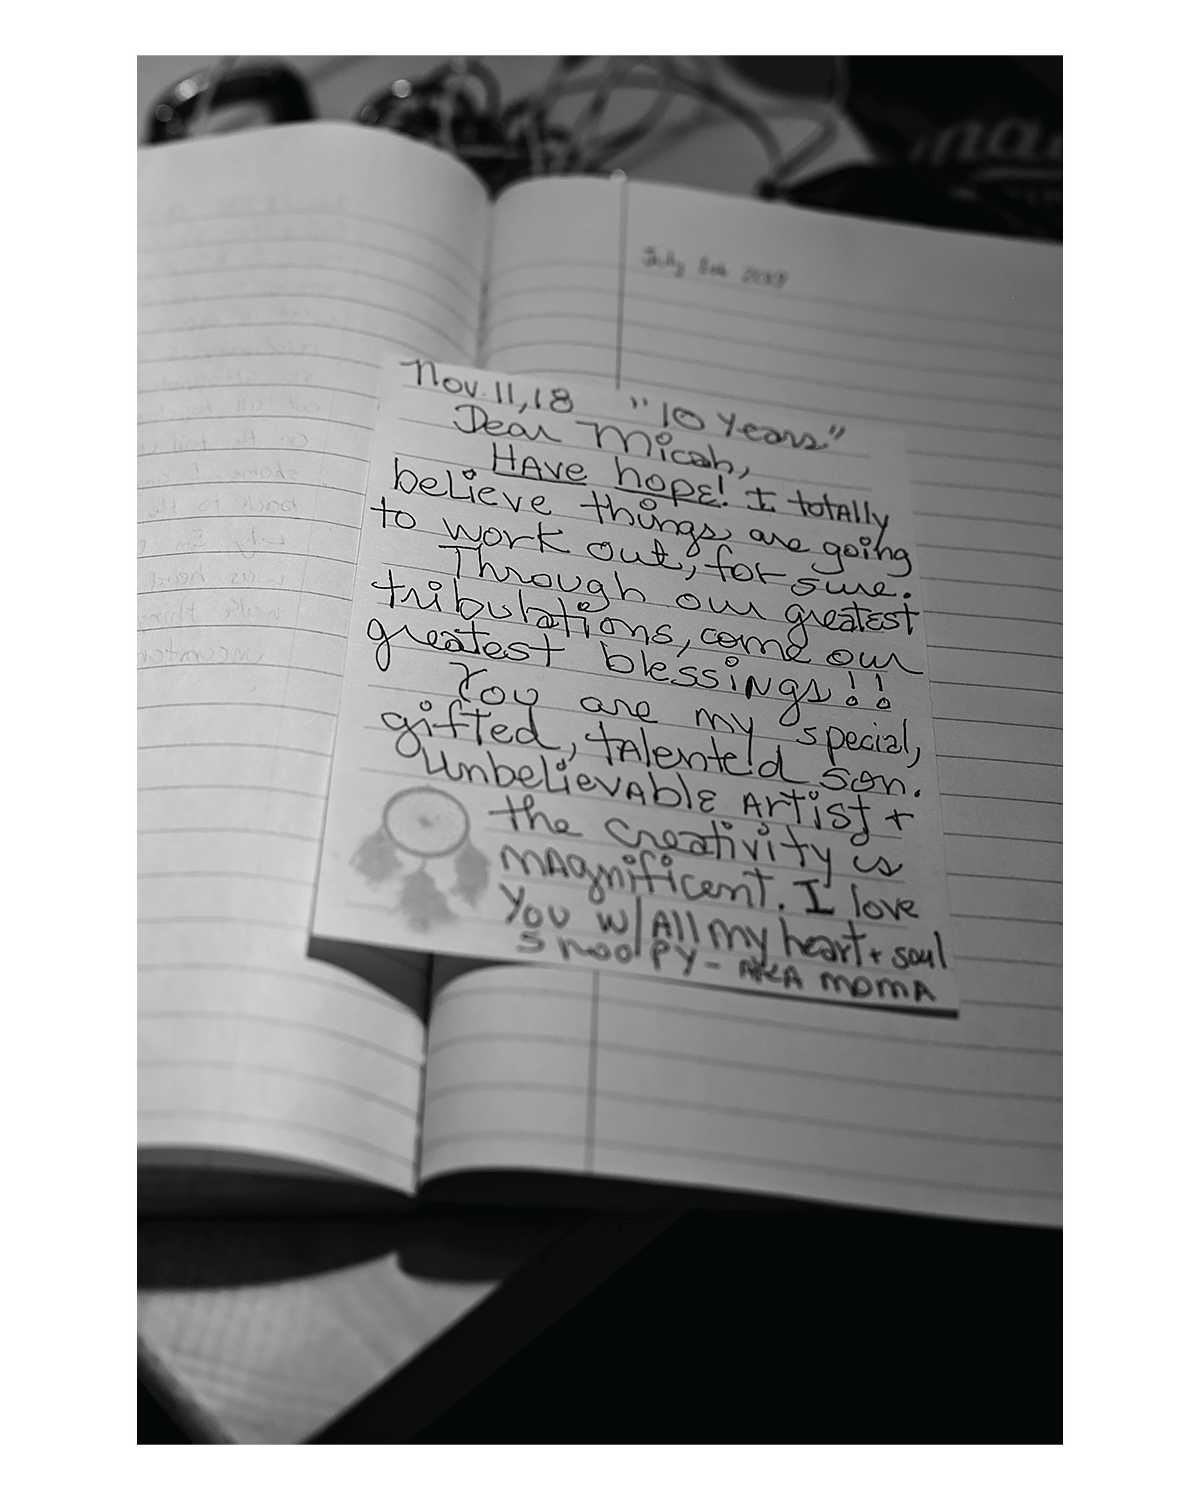 July 2019
Nov. 11, 18 "10 Years"
Dear Micah,
HAVE hope! I totAlly
believe things are going
to work out, for sure.
Through our greatest
tribulations, come our
greatest blessings!!
You are my special,
gifted, tAlented son.
UnbelievAble Artist +
the creativity is
mAgnificent. I love
You w/ All my heart + soul
SNOOPY - AKA MOMA